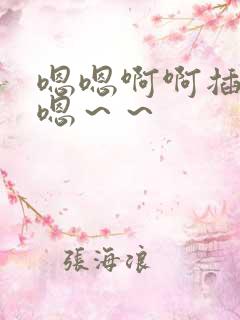 嗯嗯啊啊插
嗯～～
張海浪